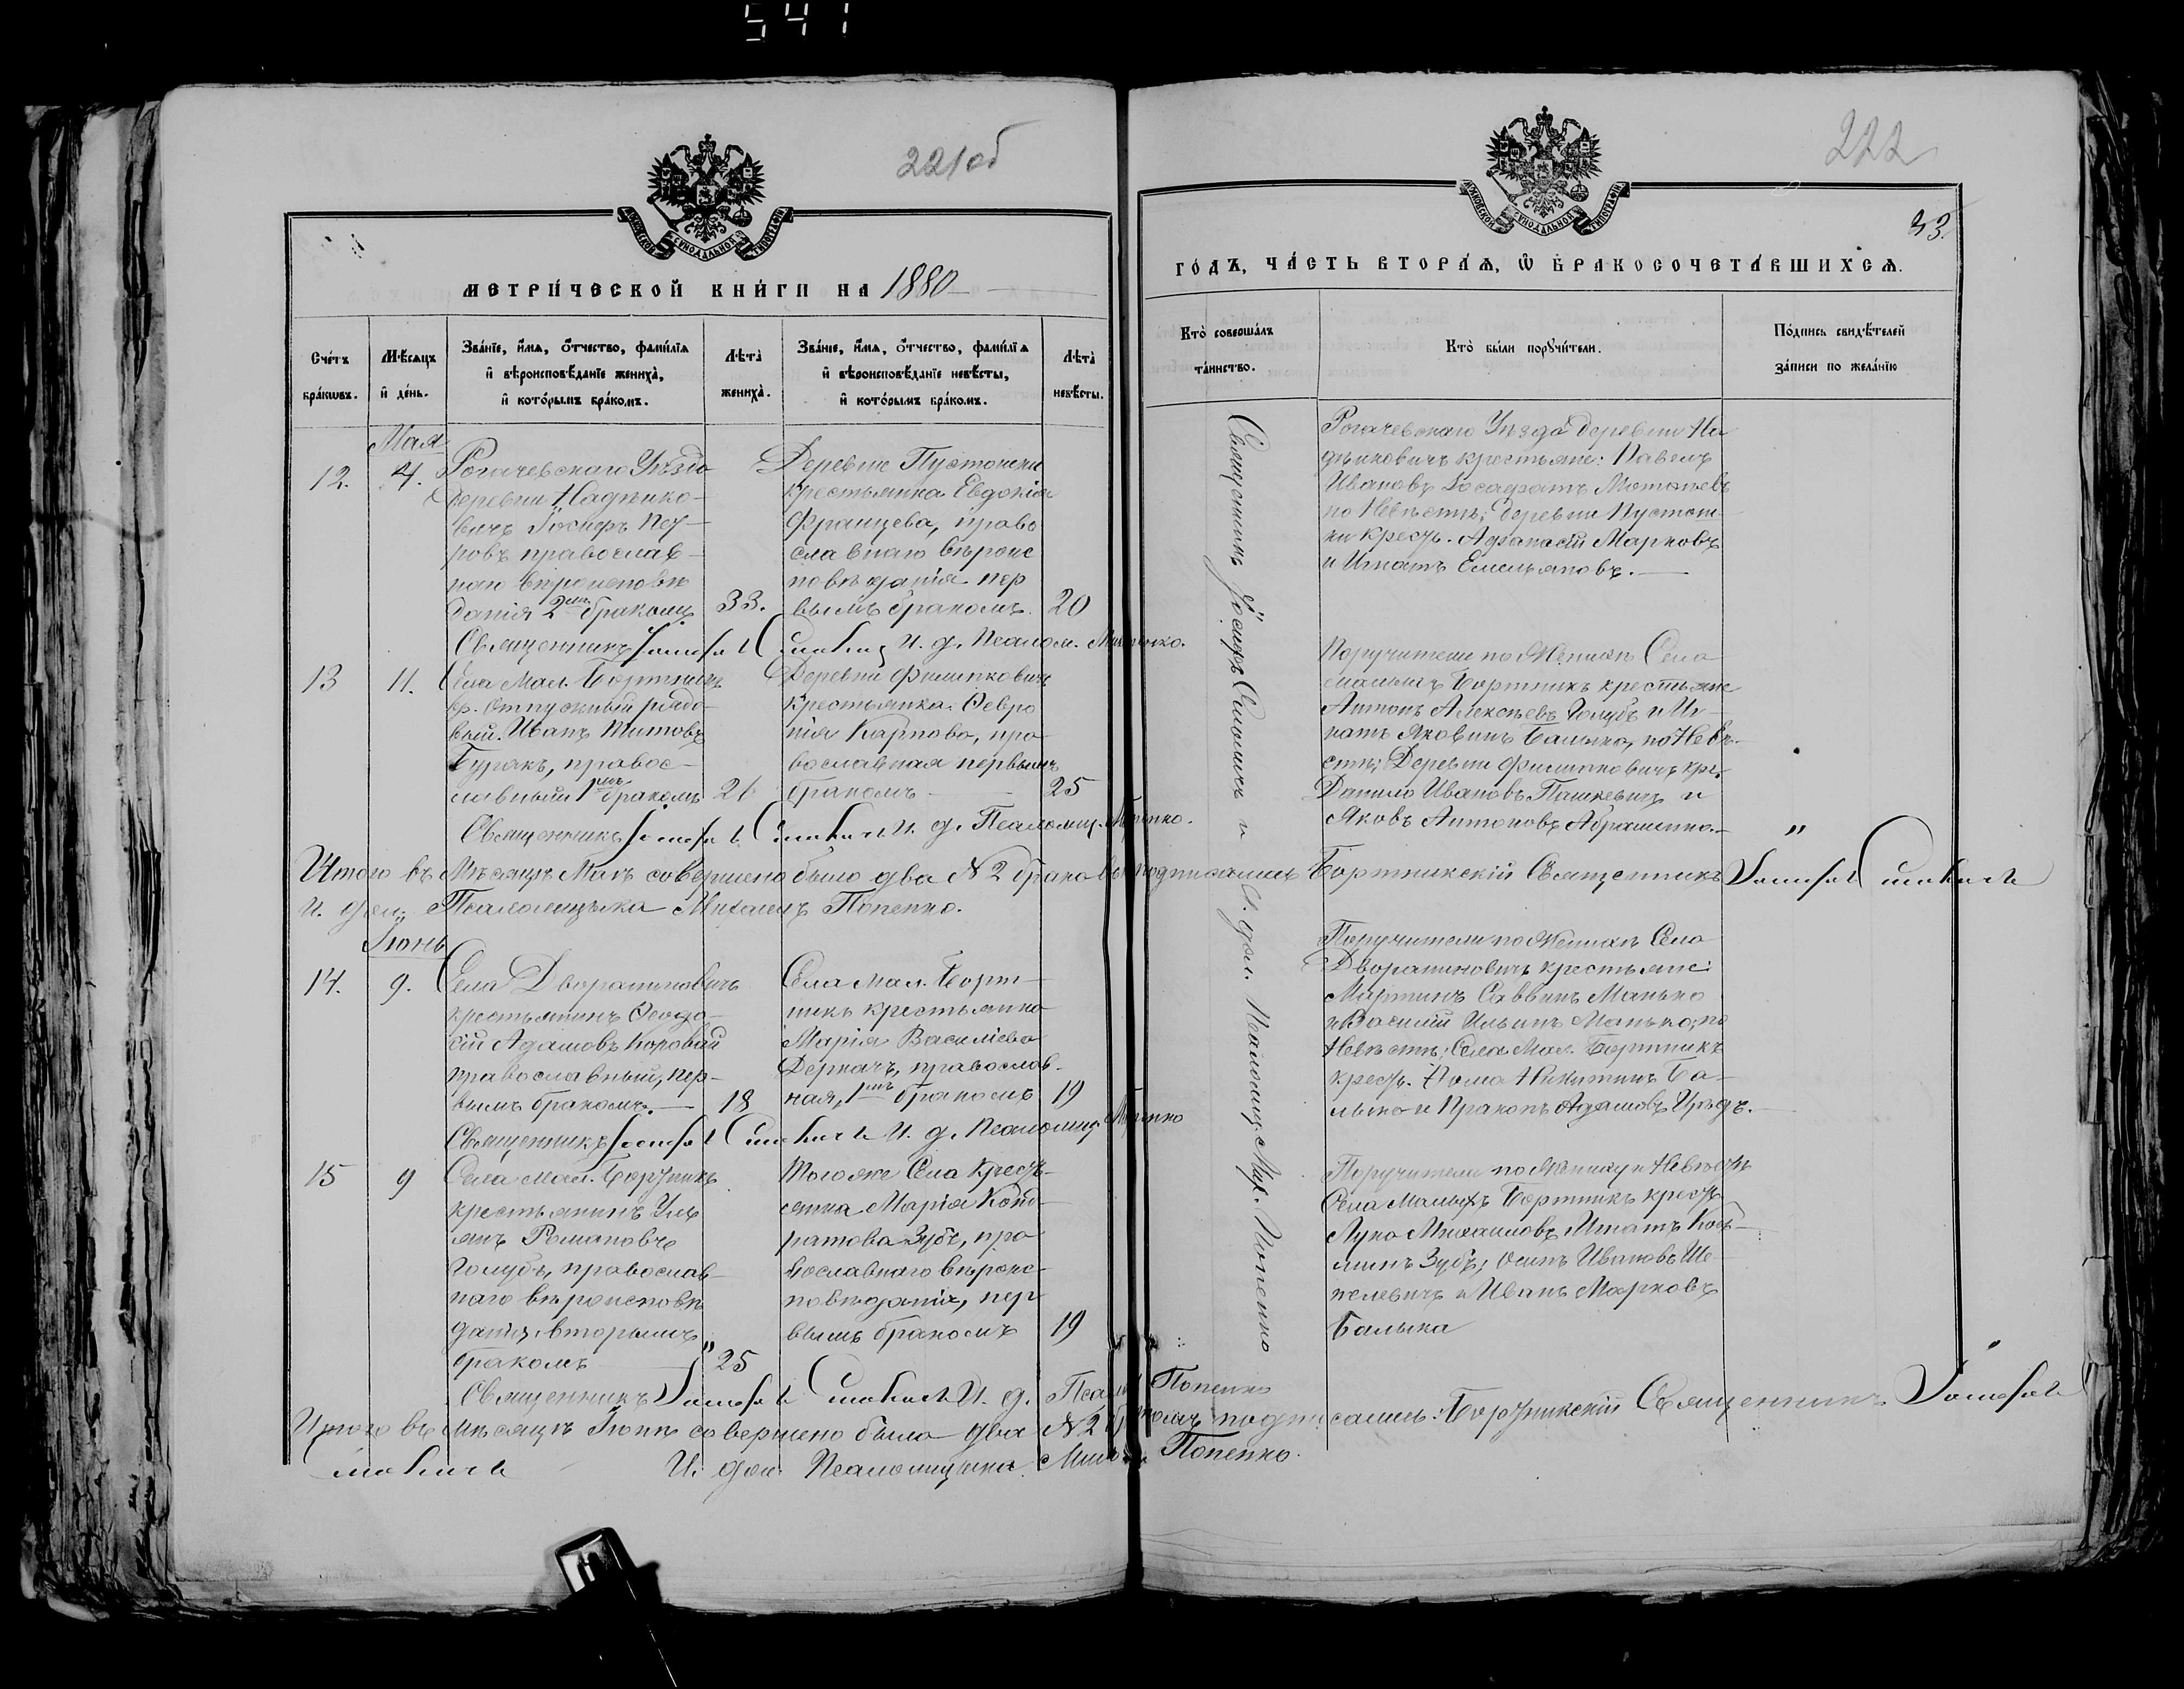 541
221об
МЕТРИ́ЧЕСКОЙ КНИ́ГИ НА 1880
Сче́тъ бра́кѡвъ.
Мѣ́сяцъ и҆ де́нь.
Зва́нїе, и҆́мя, ѻ҆́тчество, фами́лїя
и҆ вѣроисповѣ́данїе жениха̀,
и҆ кото́рымъ бра́комъ.
Лѣта̀ жениха̀.
Зва́нїе, и҆́мя, ѻ҆́тчество, фами́лїя
и҆ вѣроисповѣ́данїе невѣ́сты,
и҆ кото́рымъ бра́комъ.
Лѣта̀ невѣ́сты.
Мая
12.
4.
Рогачевскаго Уѣзда
деревни Надѣико-
вичъ Іосифъ Пет-
ровъ православ-
наго вѣроисповѣ
данія 2мъ бракомъ
33.
Деревни Пустошки
крестьянка Евдокія
Францева, право
славнаго вѣроис
повѣданія пер
вымъ бракомъ.
20
Священникъ И. д. Псалом.
13
11.
Села Мал. Бортникъ
отпускный рядо-
вый Иванъ Титовъ
Буракъ, правос-
лавный 1мъ бракомъ
26
Деревни Филипковичъ
крестьянка Февро
нія Карпова, пра-
вославная первымъ
бракомъ
25
Священникъ И. д. Псаломщ.
Итого въ Мѣсяцѣ Маѣ совершено было два №2 брака подписались Бортникскій Священникъ
И. дол. Псаломщика Михаилъ Попенко.
Іюнь
14.
9.
Села Дворяниновичъ
крестьянинъ Феодо-
сій Адамовъ Коровай
православный, пер-
вымъ бракомъ.
18
Села Мал. Борт-
никъ крестьянка
Марія Василіева
Деркачъ, православ-
ная, 1мъ бракомъ
19
Священникъ И. д. Псаломщ.
15
9
Села Мал. Бортникъ
крестьянинъ Уль
янъ Романовъ
Голубъ, православ-
наго вѣроисповѣ
данія вторымъ
бракомъ
25
Того же Села Кресть-
янка Марія Конд-
ратова Зубъ, пра
вославнаго вѣроис-
повѣданія, пер
вымъ бракомъ
19
Священникъ И. д. Попенко
Итого въ Мѣсяцѣ Іюнѣ совершено было два №2 подписались: Бортникскій Священникъ
И. дол. Псаломщика Попенко.
222
33.
ГО́ДЪ, ЧА́СТЬ ВТОРА́Я, Ѡ҆ БРАКОСОЧЕТА́ВШИХСЯ.
Кто̀ соверша́лъ
та́инство.
Кто̀ бы́ли порꙋчи́тели.
По́дпись свидѣ́телей
за́писи по жела́нїю
Священникъ Іосифъ и И. дол. Псаломщ. Мих. Попенко
Рогачевскаго Уѣзда деревни На
дѣиковичъ крестьяне: Павелъ
Ивановъ
по Невѣстѣ: деревни Пустош-
ки Крест. Афанасій Марковъ
и Игнатъ Емельяновъ.
Поручители по Женихѣ Села
Малыхъ Бортникъ крестьяне
Антонъ Алексѣевъ Голубъ и Иг-
натъ Яковинъ Балыка, по Невѣ-
стѣ: Деревни Филипковичъ кре.
Данило Ивановъ Пашкевичъ и
Яковъ Антоновъ Абраменко.
Поручители по Женихѣ Села
Дворяниновичъ крестьяне:
Мартинъ Саввинъ Манько
и Василій Ильинъ Манько, по
Невѣстѣ: Села Мал. Бортникъ
крест. Фома Никитинъ Ба-
лыка и Прокопъ Адамовъ
Поручители по Жениху и Невѣстѣ
Села Малыхъ Бортникъ крест.
Лука Михаиловъ, Игнатъ Козь-
минъ Зубъ, Осипъ Ивановъ Ше-
пелевичъ и Иванъ Марковъ
Балыка